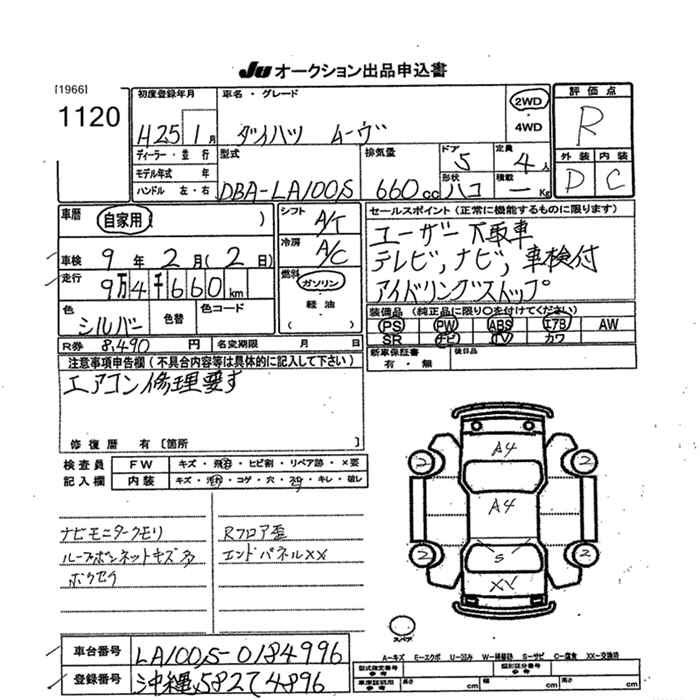 JU オークション出品申込書
[1966]
1120
初度登録年月
H25 1月
車名・グレード
ダイハツ ムーヴ
2WD
4WD
評価点
R
外装 内装
D C
ディーラー・並行
モデル年式 年
ハンドル 左・右
型式
DBA-LA100S
排気量
660cc
ドア
5
定員
4人
形状
ハコ
積載
- Kg
車歴
自家用( )
車検 9年2月(2日)
走行 9万4千660km
色 シルバー 色替 色コード
シフト A/T
冷房 A/C
燃料
ガソリン
軽油
( )
セールスポイント(正常に機能するものに限ります)
ユーザー下取車
テレビ,ナビ,車検付
アイドリングストップ
装備品(純正品に限り○を付けてください)
PS PW ABS エアB AW
SR ナビ TV カワ
R券 8,490円 名変期限 月 日
新車保証書
有・無
後日品
注意事項申告欄(不具合内容等は具体的に記入して下さい)
エアコン修理要す
修復歴 有〔箇所 〕
検査員
記入欄
FW キズ・飛石・ヒビ割・リペア跡・×要
内装 キズ・汚れ・コゲ・穴・スレ・キレ・破レ
ナビモニタークモリ
ルーフボンネットキズ多
ボケセラ
Rフロア歪
エンドパネルXX
A4
2 2
A4
2 2
S
XV
スペア
車台番号 LA100S-0184996
登録番号 沖縄 582て4896
A-キズ E-エクボ U-凹み W-補修跡 S-サビ C-腐食 XX-交換済
型式指定番号
参考
類別区分番号
参考
車庫証明用
参考
長さ cm 幅 cm 高さ cm